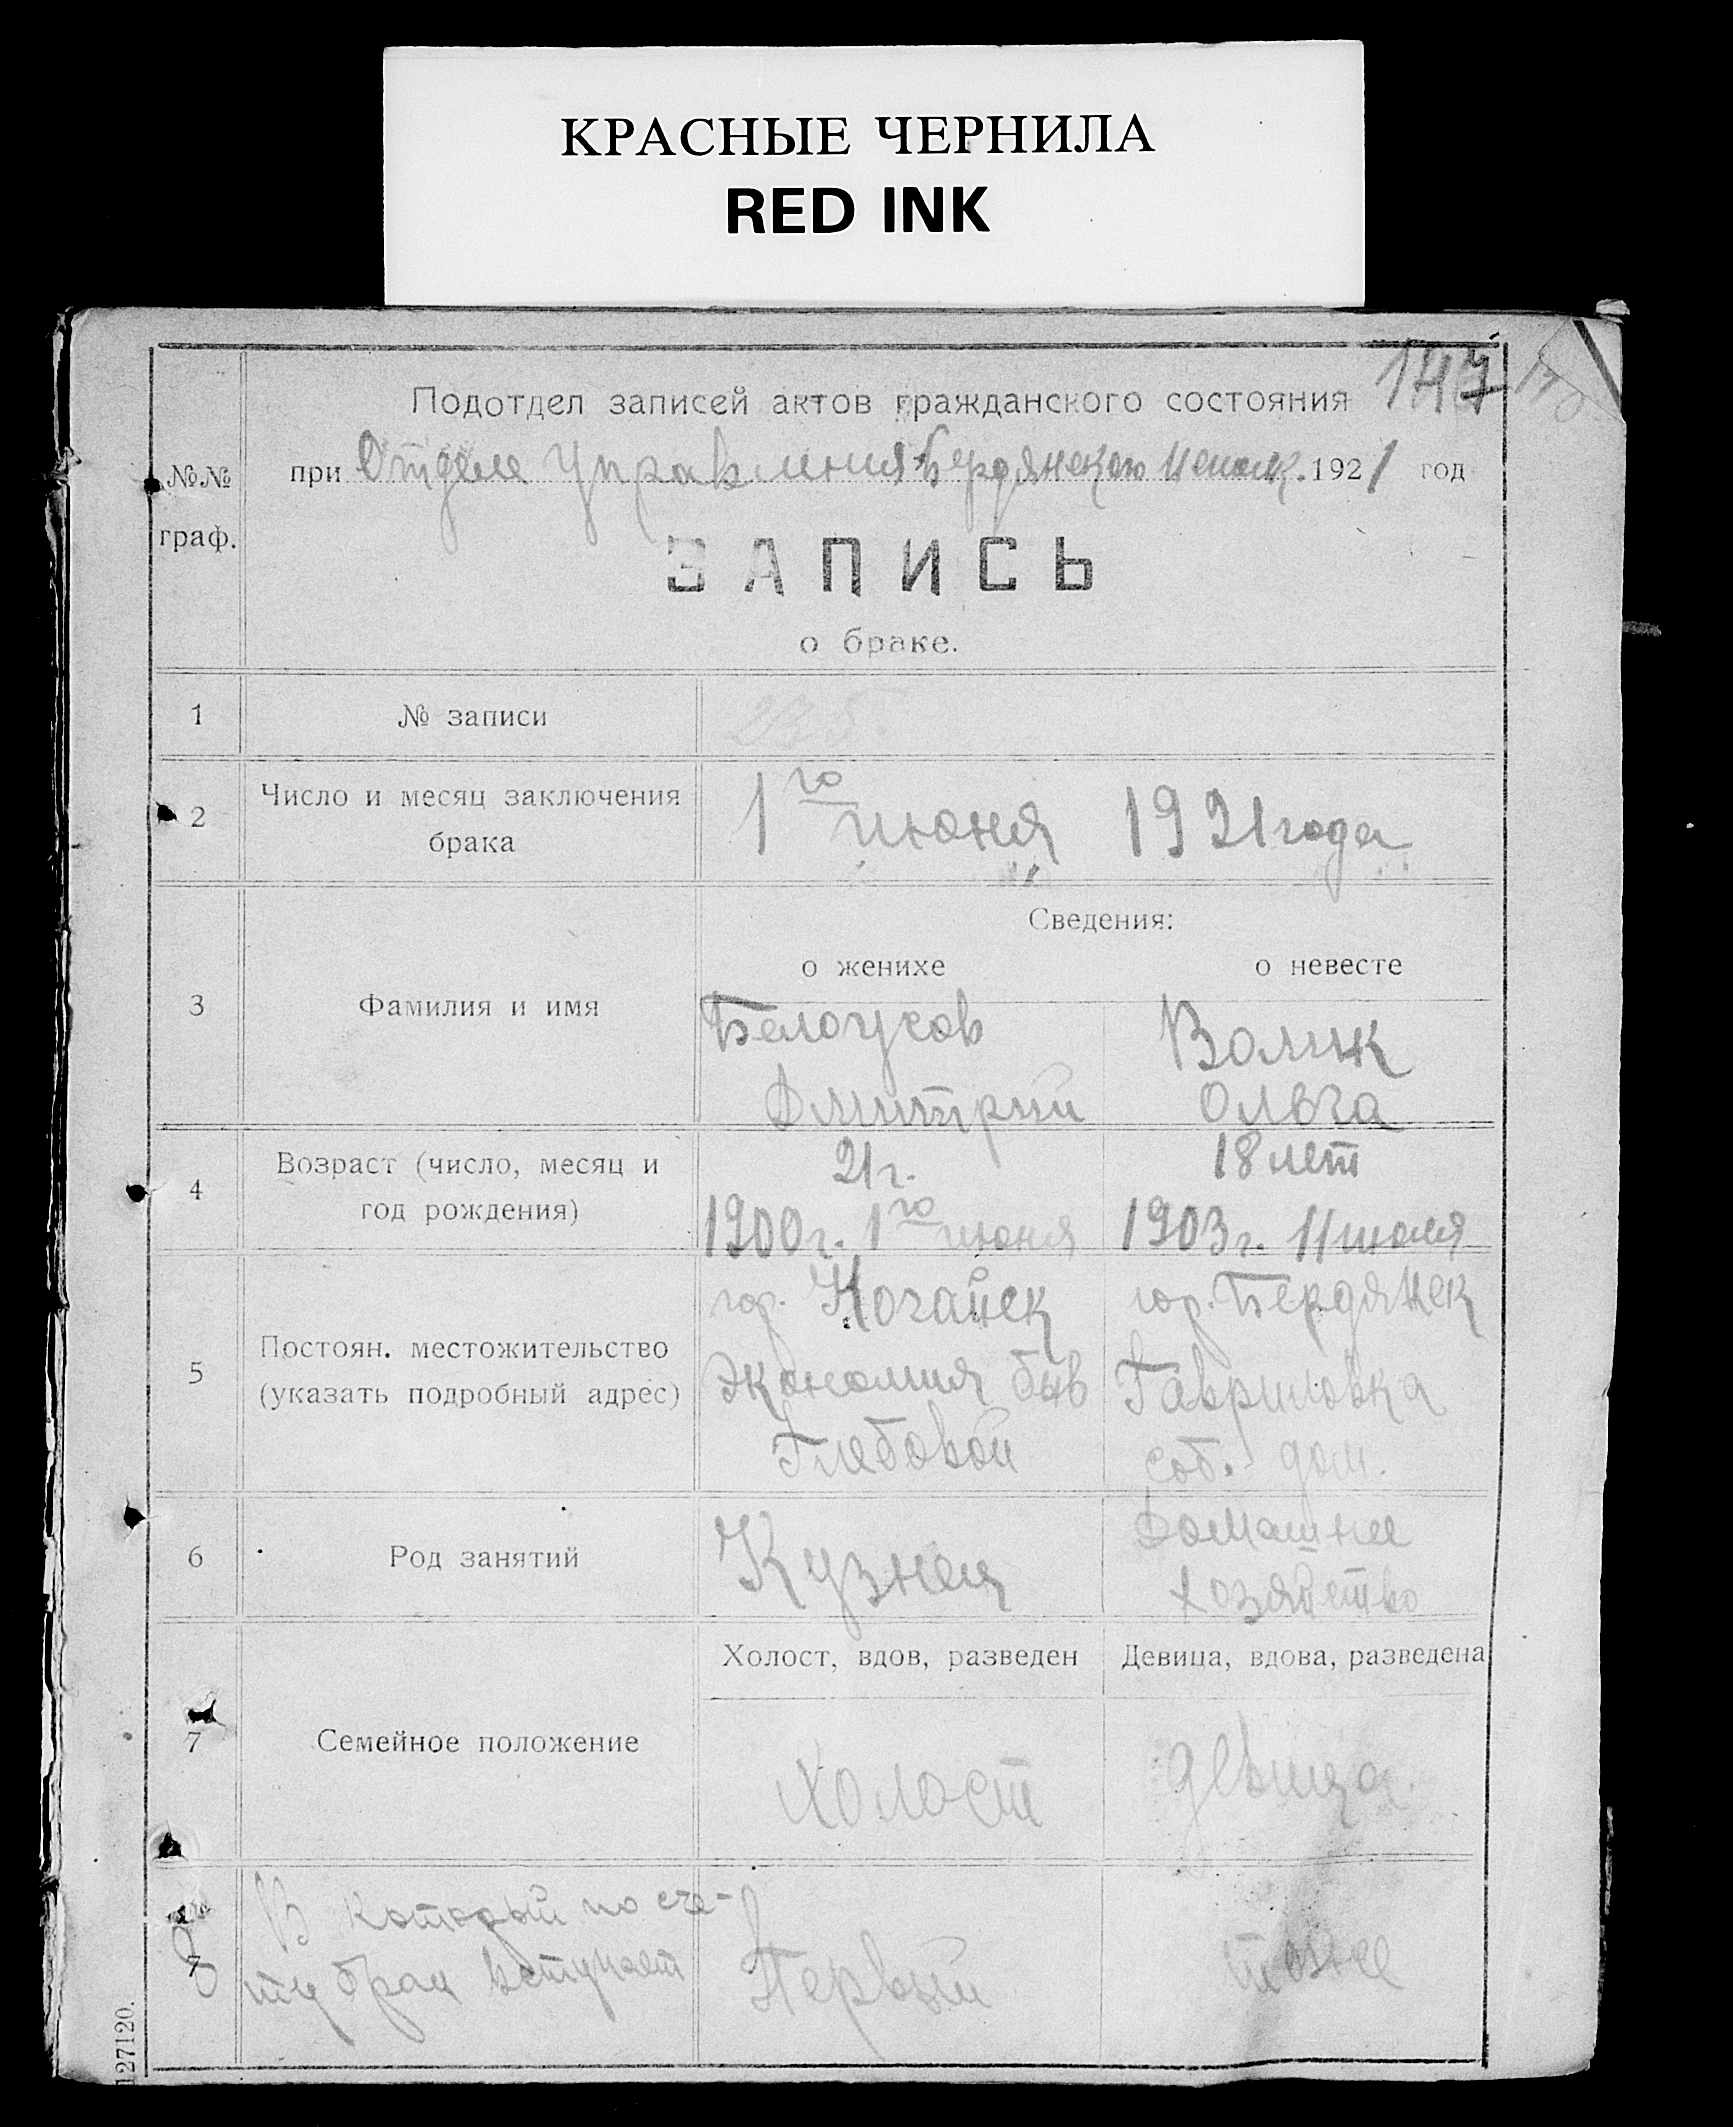 КРАСНЫЕ ЧЕРНИЛА
RED INK
147
Подотдел записей актов гражданского состояния
№№ граф.
при Отделе Управления Бердянского Исполк. 1921 год
ЗАПИСЬ
о браке.
1 № записи
2 Число и месяц заключения брака
1го июня 1921 года
Сведения:
о женихе о невесте
3 Фамилия и имя
Белоусов Волик
Дмитрий Ольга
4 Возраст (число, месяц и год рождения)
21 г. 18 лет
1900 г. 1го июня 1903 г. 11 июля
5 Постоян. местожительство (указать подробный адрес)
гор. Ногайск гор. Бердянск
Экономия быв Гавриловка
Глебовой соб. дом.
6 Род занятий
Кузнец Домашнее
хозяйство
Холост, вдов, разведен Девица, вдова, разведена
7 Семейное положение
холост девица
8 В который по сче-
ту брак вступает
Первый тоже
127120.